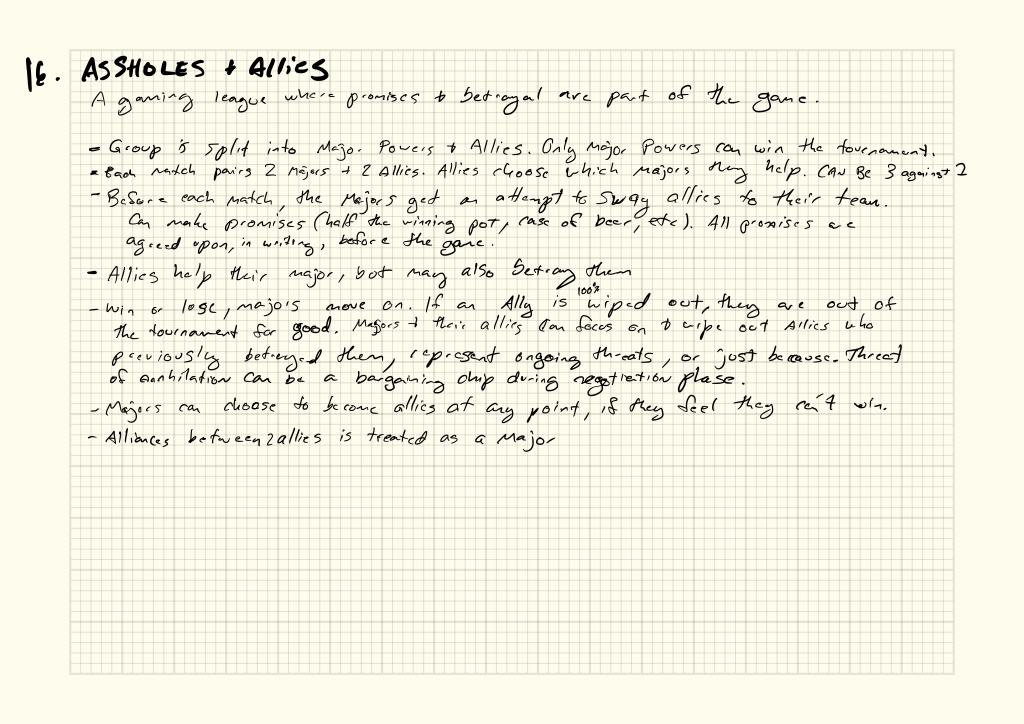 16. ASSHOLES + Allies
A gaming league where promises + betrayal are part of the game.
- Group is split into Major Powers + Allies. Only Major Powers can win the tournament.
- Each match pairs 2 Majors + 2 Allies. Allies choose which majors they help. CAN BE 3 against 2
- Before each match, the Majors get an attempt to sway allies to their team.
Can make promises (half the winning pot, case of beer, etc). All promises are
agreed upon, in writing, before the game.
- Allies help their major, but may also betray them
- Win or lose, majors move on. If an Ally is 100% wiped out, they are out of
the tournament for good. Majors + their allies can focus on + wipe out Allies who
previously betrayed them, represent ongoing threats, or just because. Threat
of annhilation can be a bargaining chip during negotiation phase.
- Majors can choose to become allies at any point, if they feel they can't win.
- Alliances between 2 allies is treated as a Major